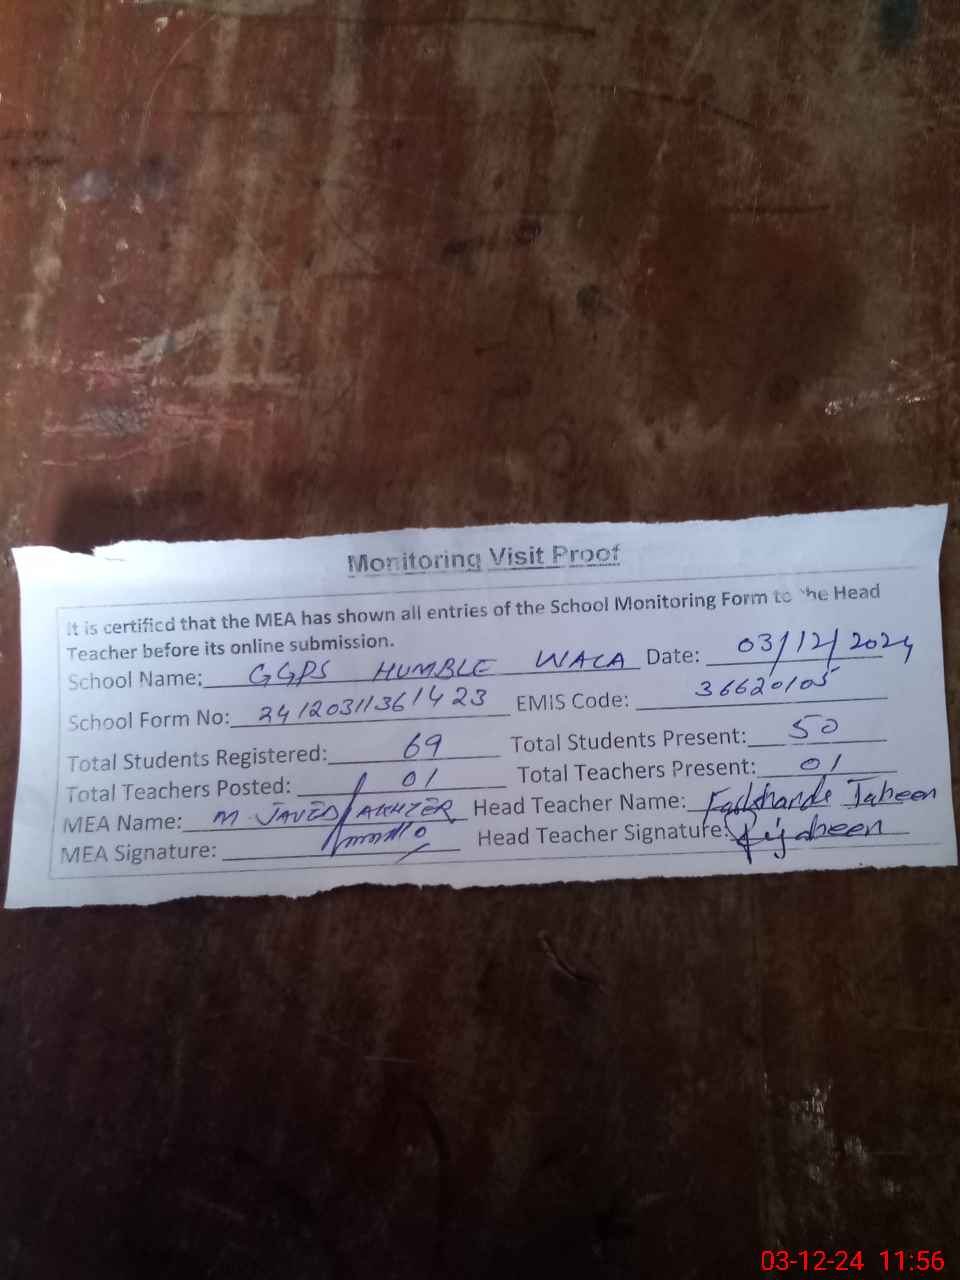 Monitoring Visit Proof
It is certified that the MEA has shown all entries of the School Monitoring Form to the Head
Teacher before its online submission.
School Name: GGPS HUMBLE WALA Date: 03/12/2024
School Form No: 24120311361423 EMIS Code: 36620105
Total Students Registered: 69 Total Students Present: 50
Total Teachers Posted: 01 Total Teachers Present: 01
MEA Name: M JAVED AKHTER Head Teacher Name: Jabeen
MEA Signature: Head Teacher Signature:
03-12-24 11:56